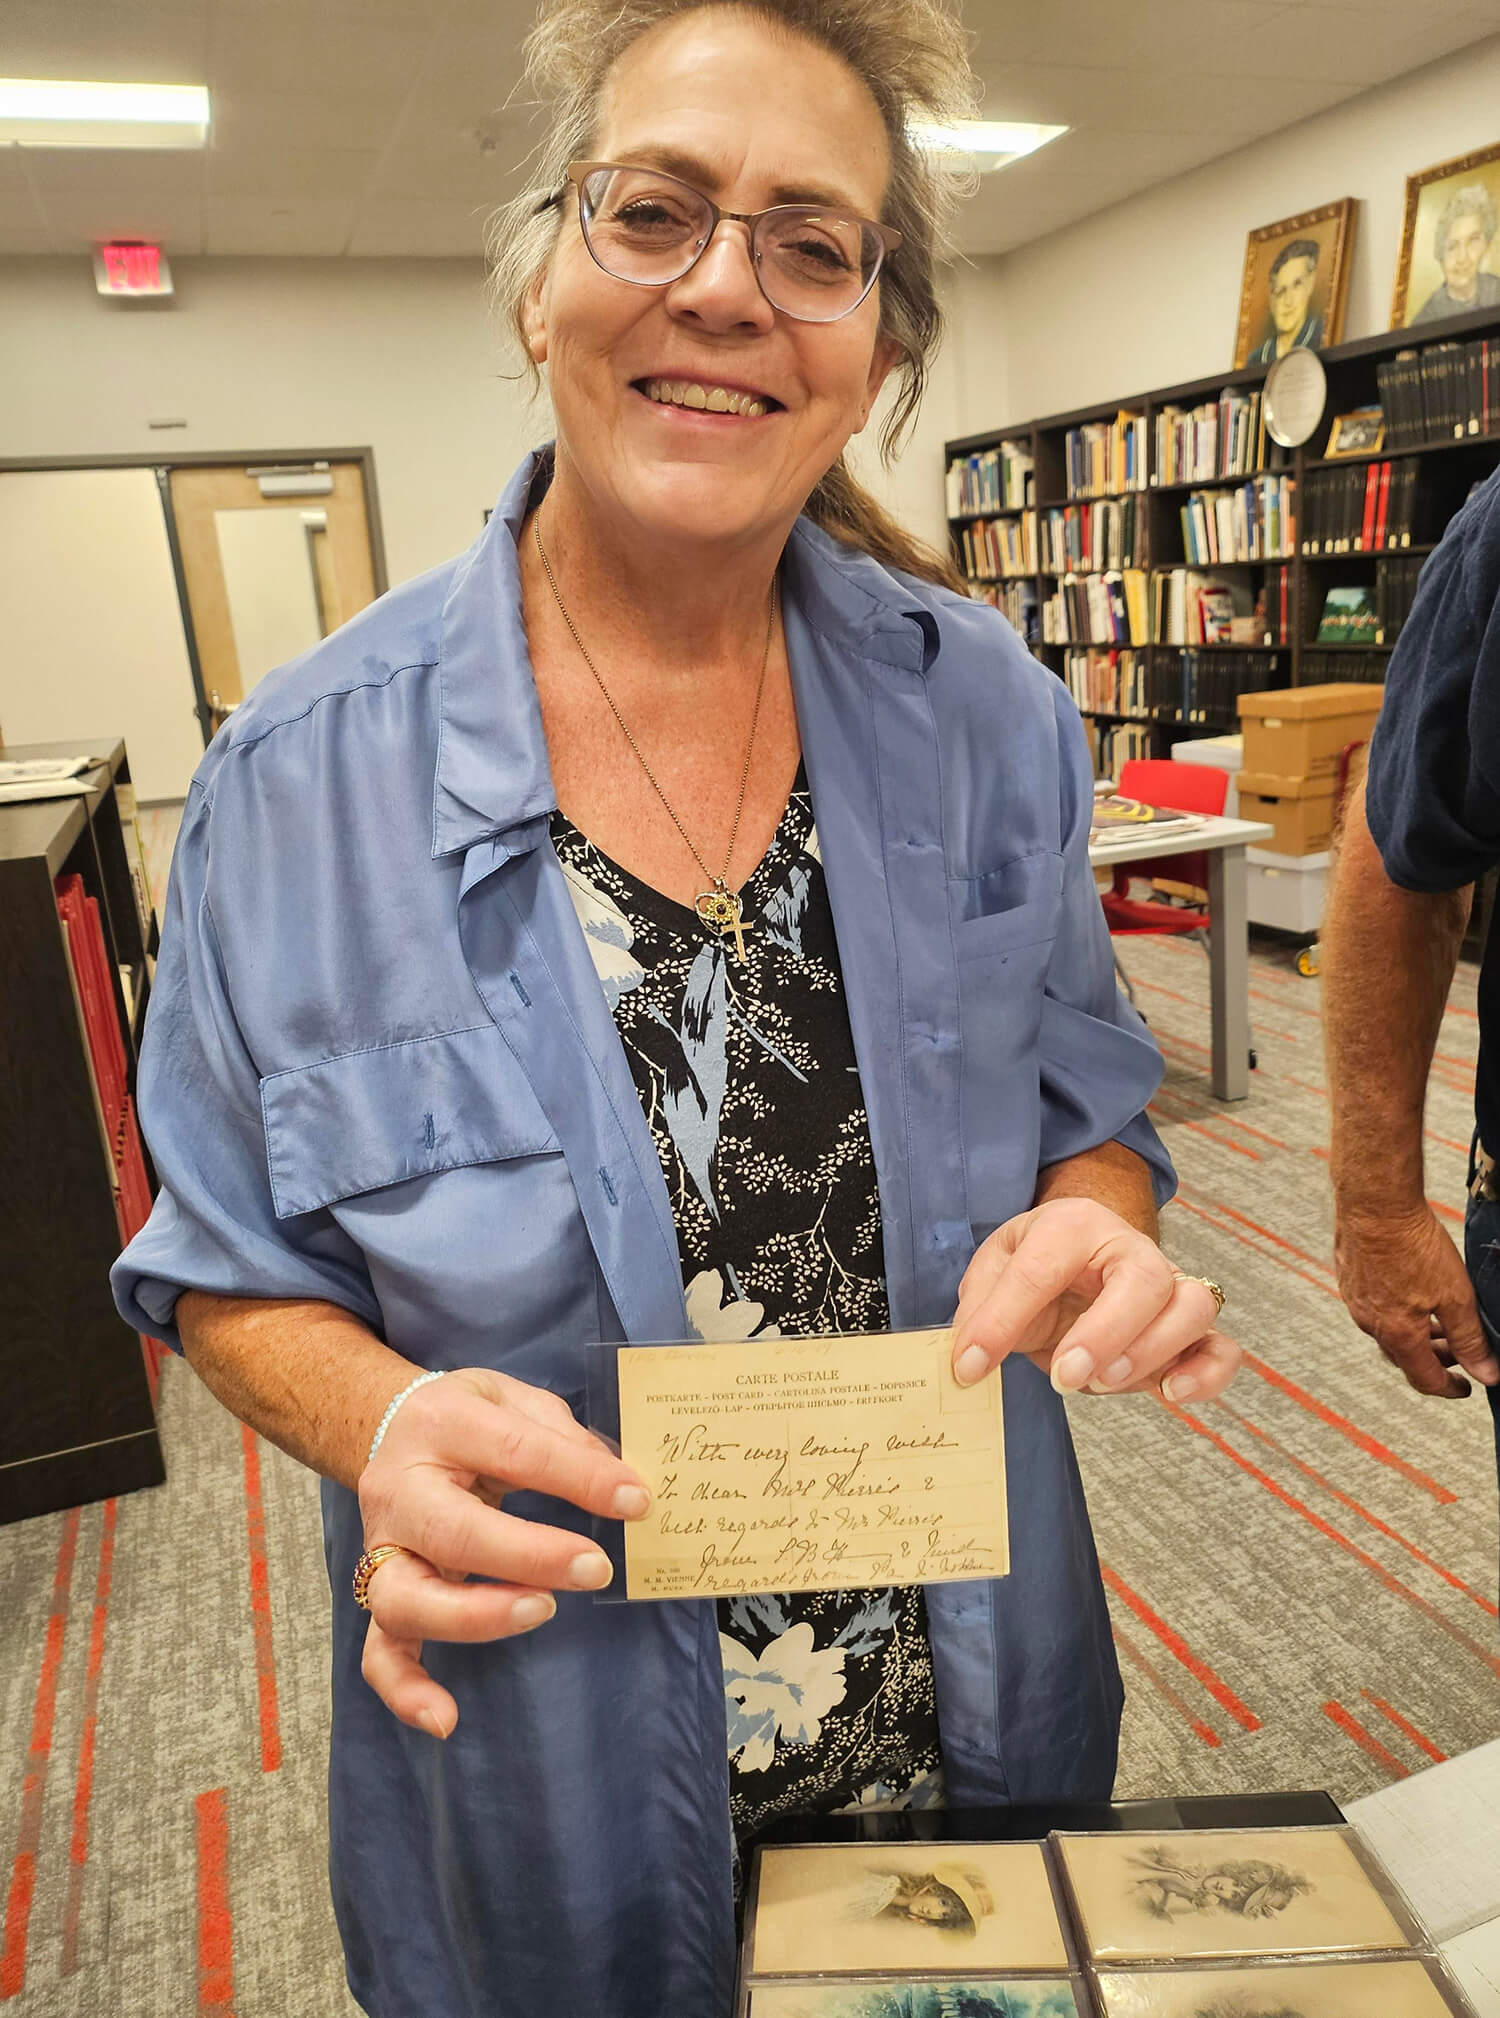 CARTE POSTALE
POSTKARTE – POST CARD – CARTOLINA POSTALE – DOPISNICE
LEVELEZŐ-LAP – ОТКРЫТОЕ ПИСЬМО – BREFKORT
With every loving wish
To dear Mrs Pierris &
best regards to Mr Pierris
From L. B. & kind
regards from Pa
No. 100
M. M. VIENNE
M. MUNK
EXIT